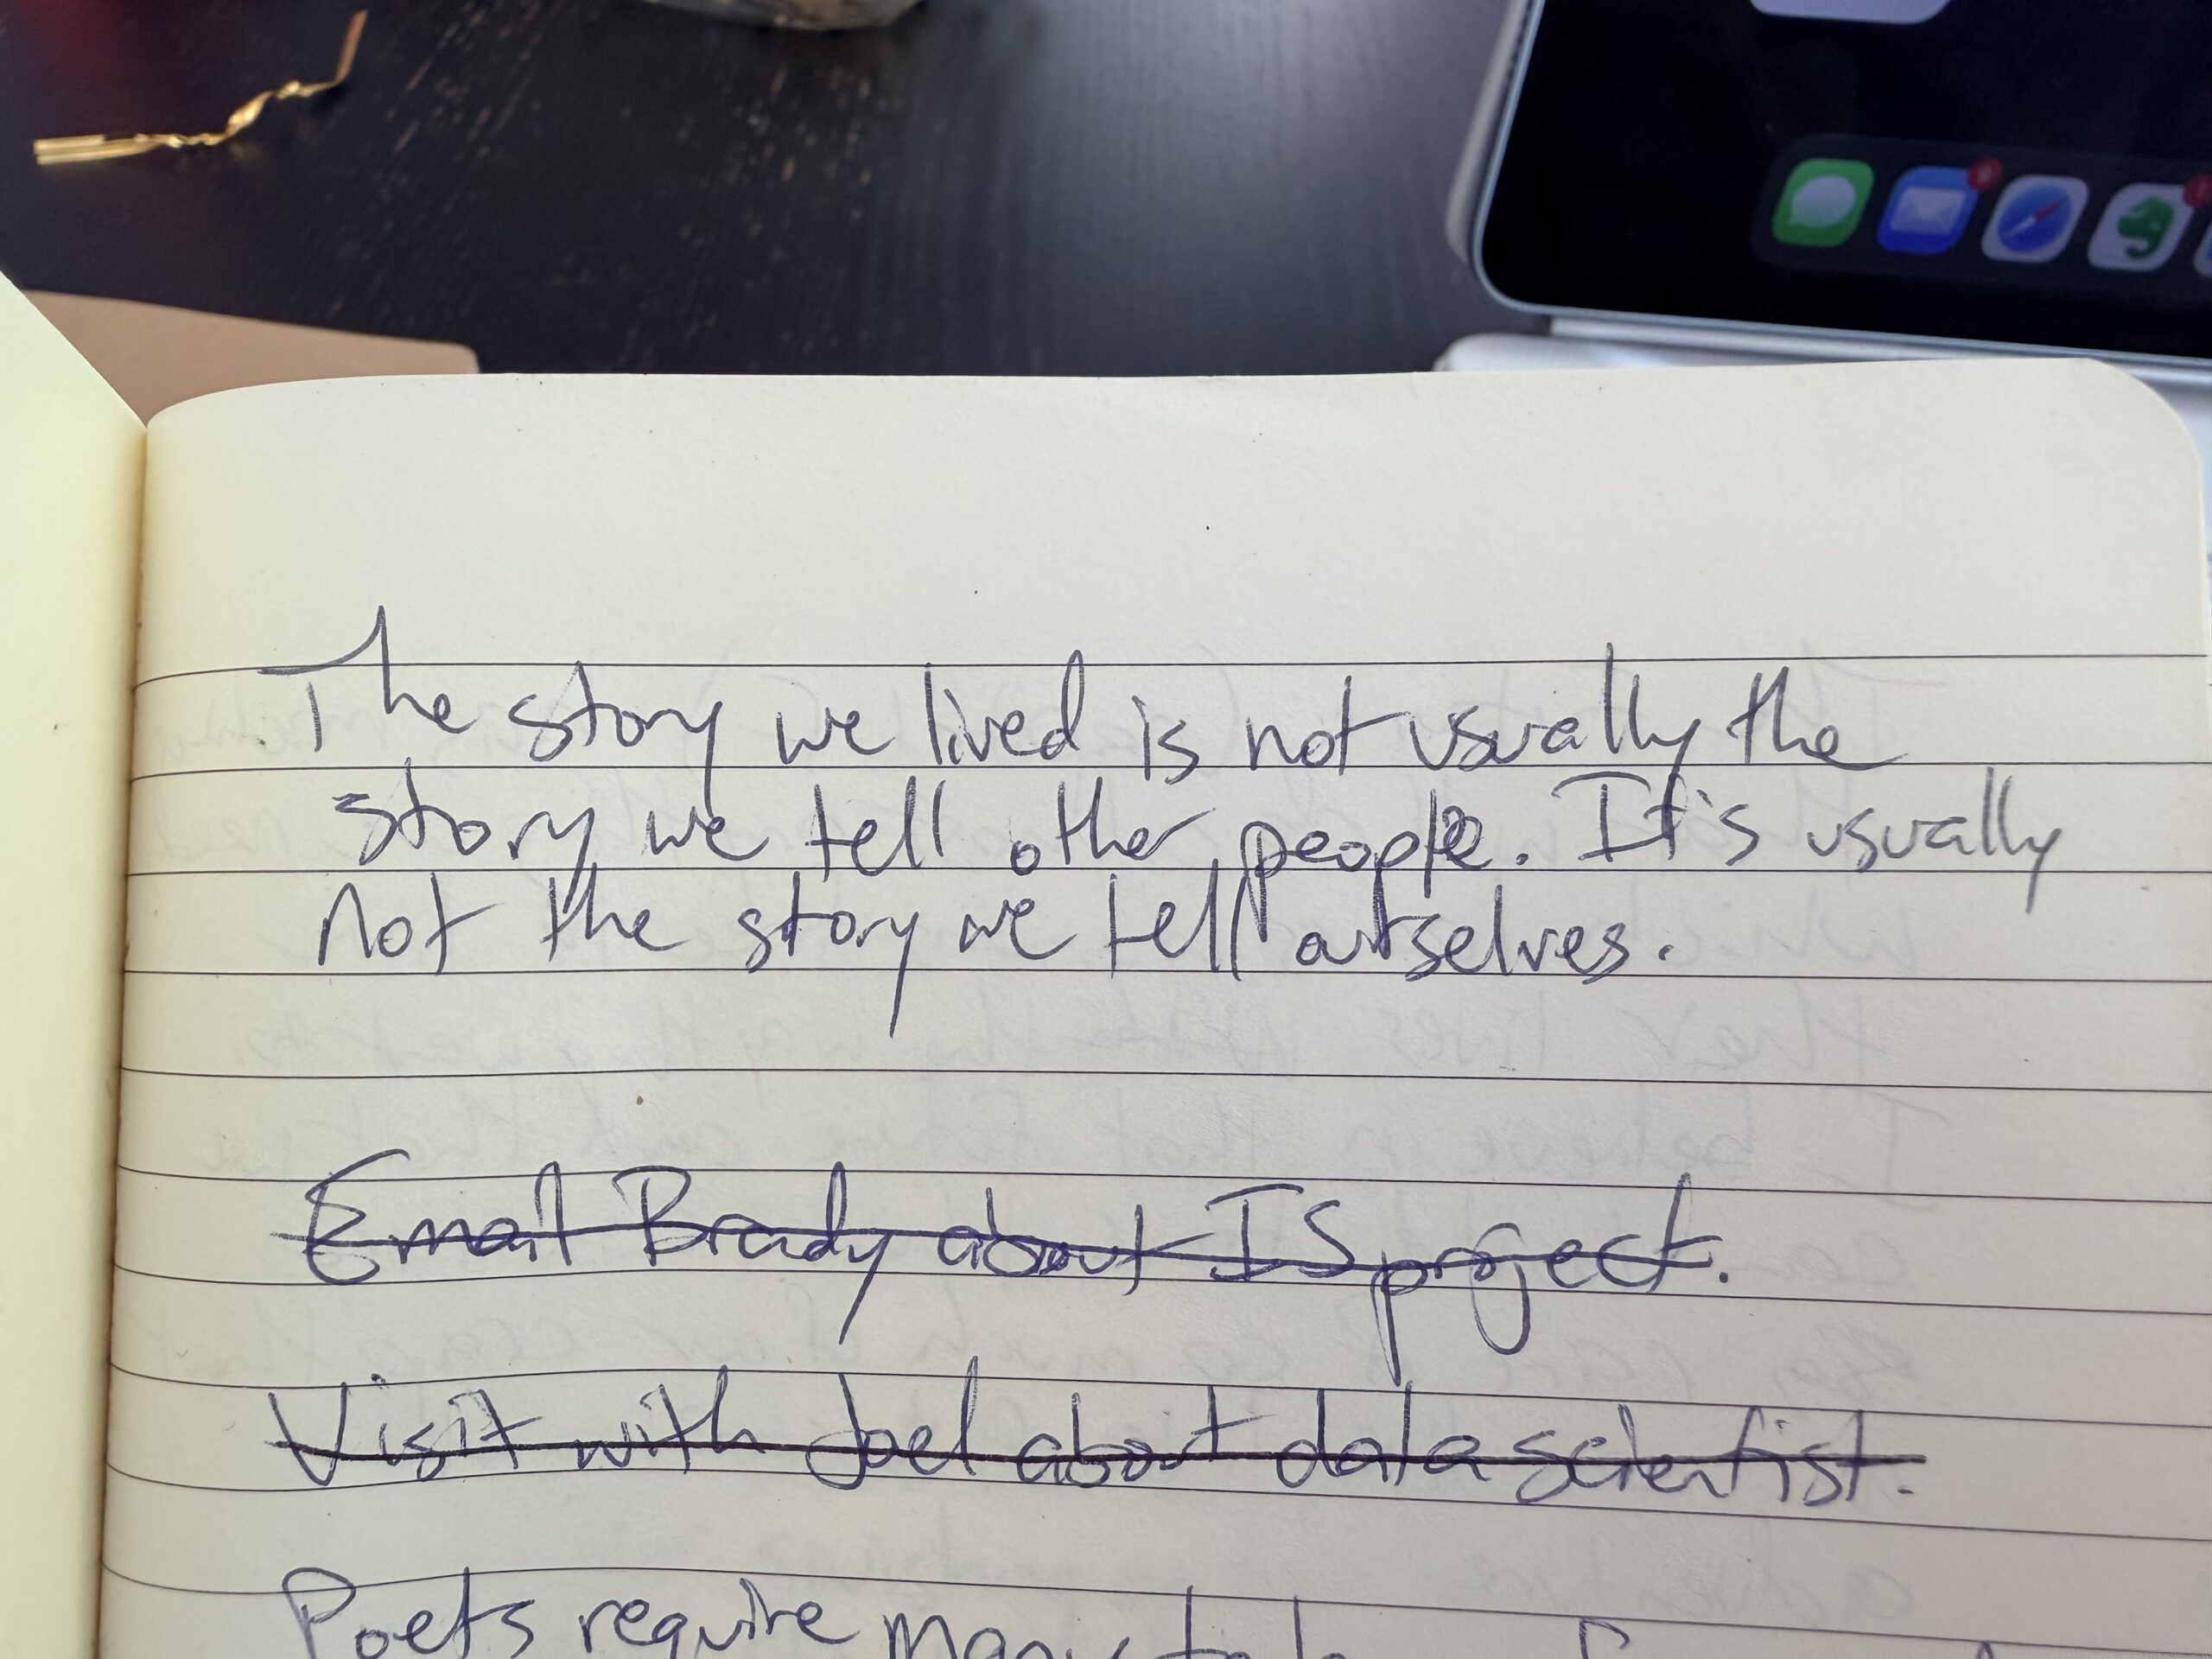 The story we lived is not usually the
story we tell other people. It's usually
not the story we tell ourselves.
Email Brady about IS project.
Visit with Joel about data scientist.
Poets require many